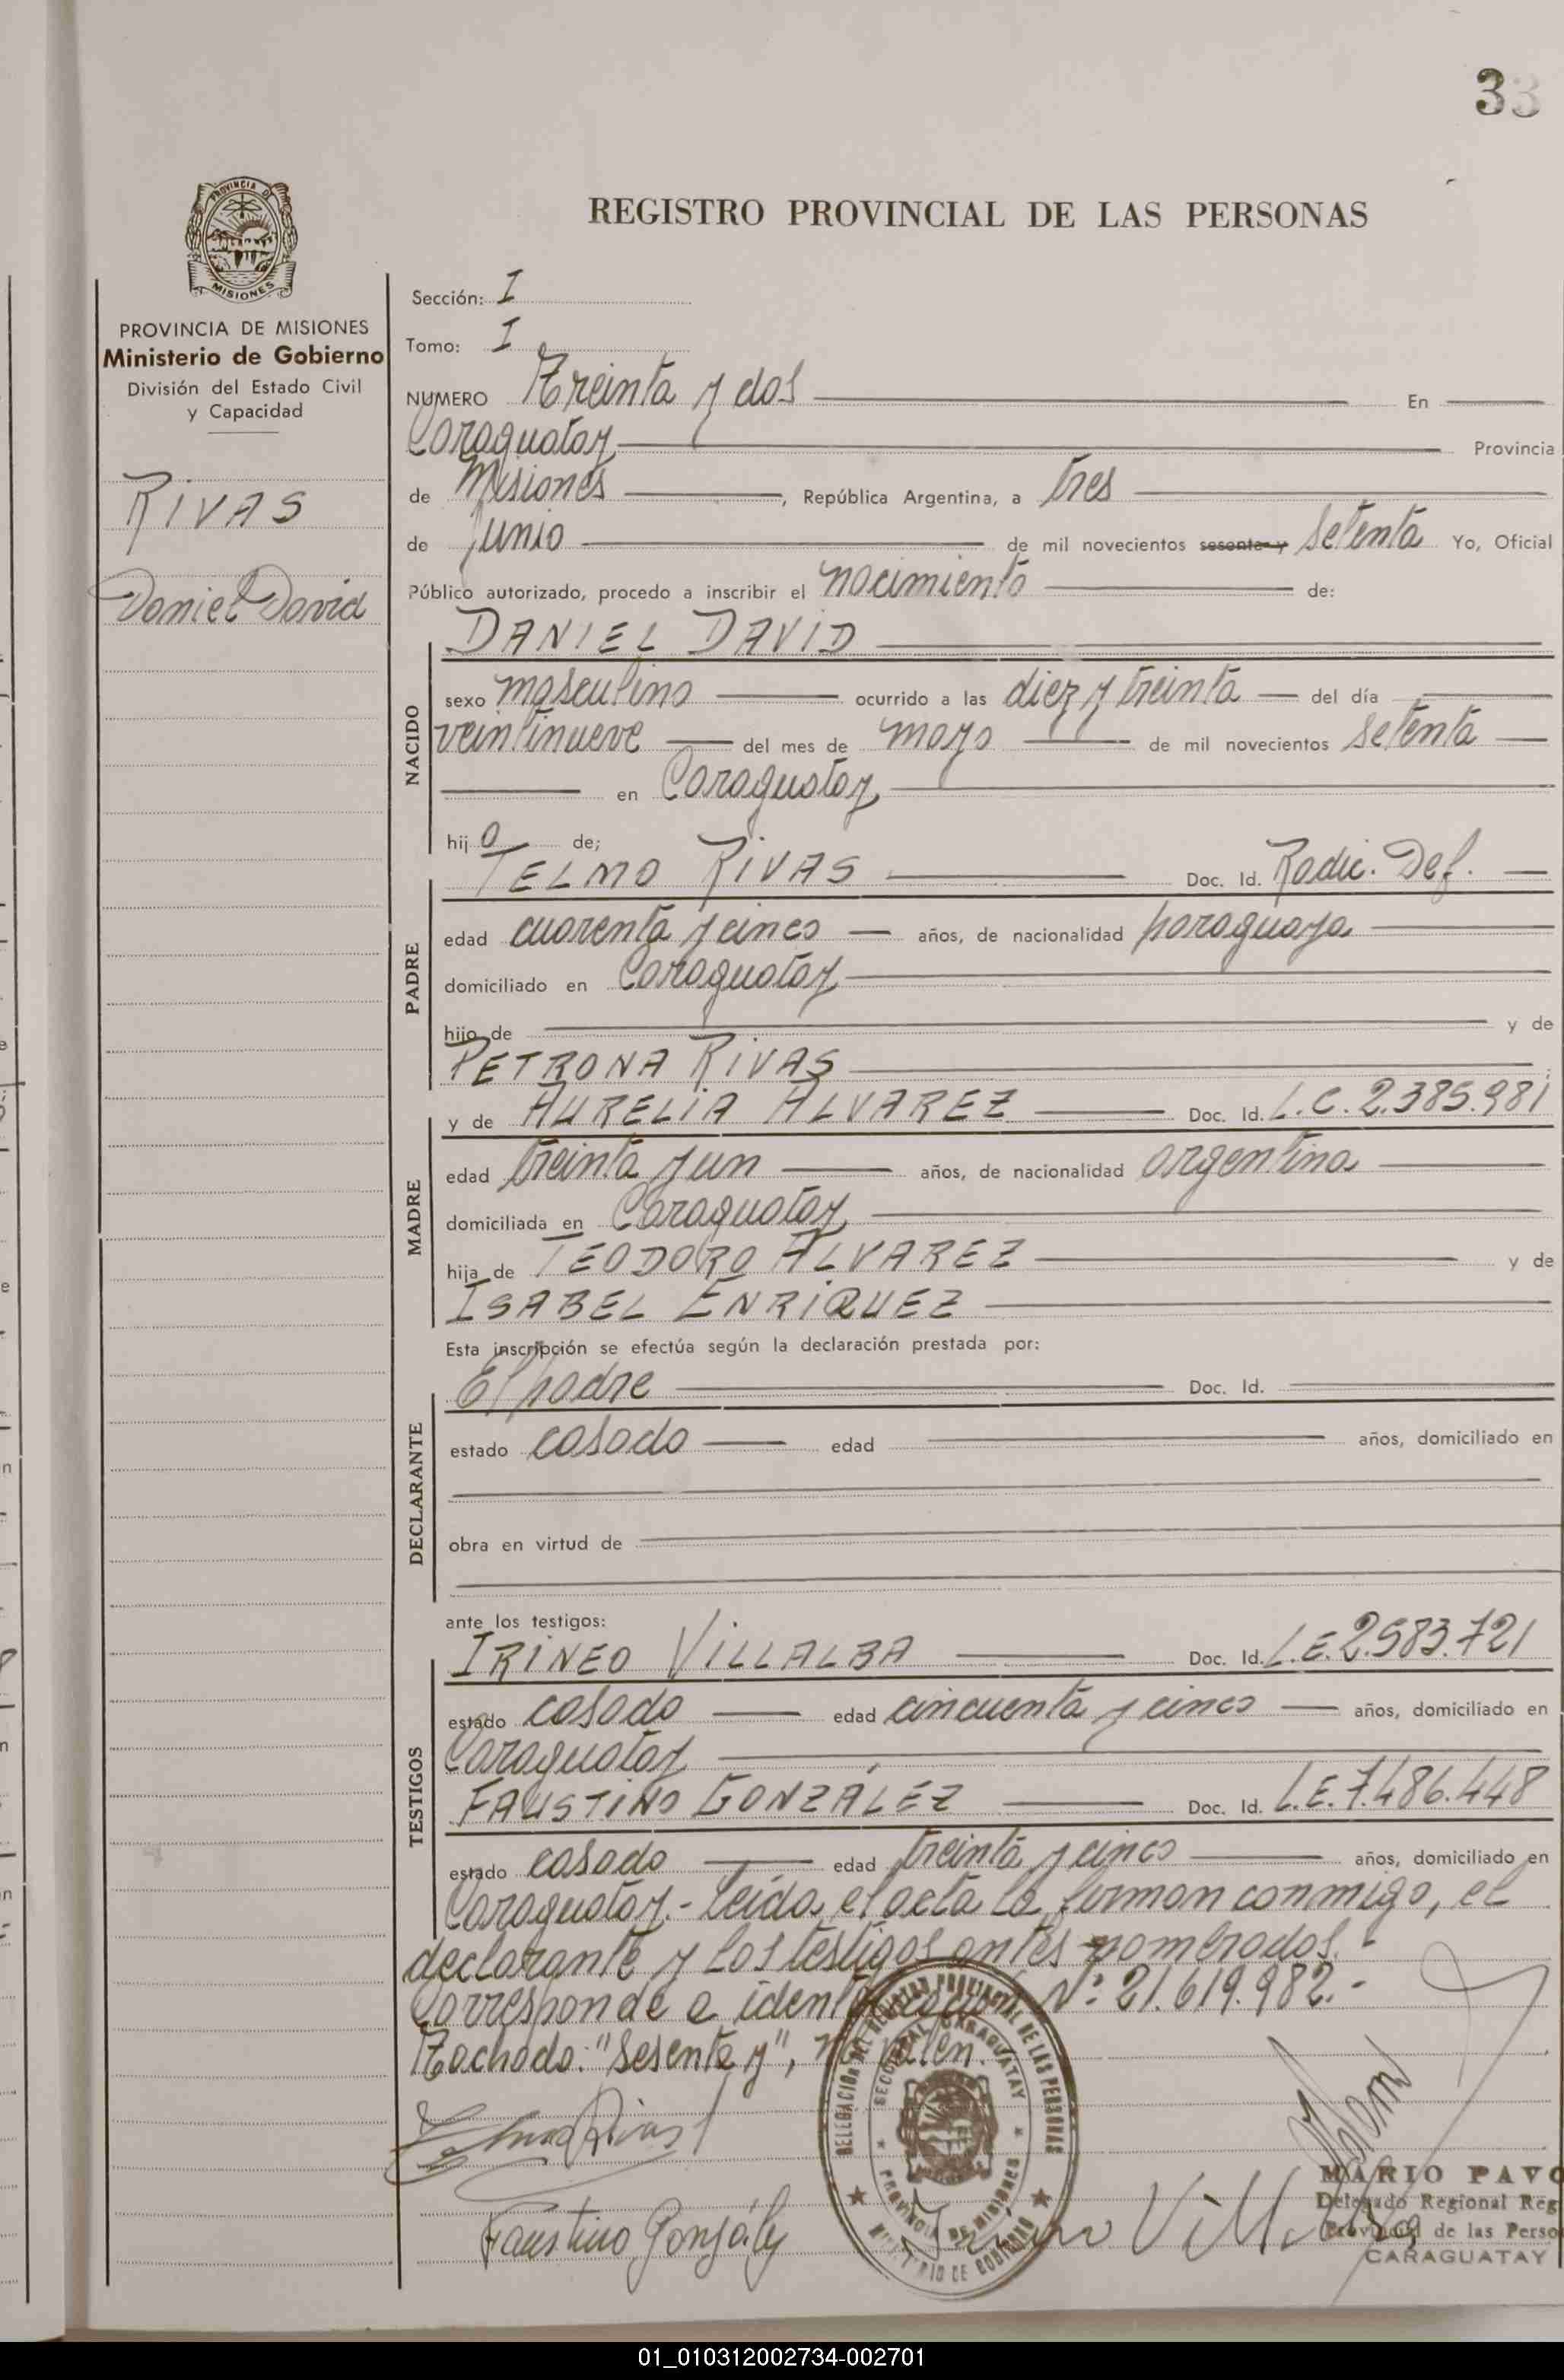 33
PROVINCIA DE
MISIONES
PROVINCIA DE MISIONES
Ministerio de Gobierno
División del Estado Civil
y Capacidad
RIVAS
Daniel David
REGISTRO PROVINCIAL DE LAS PERSONAS
Sección: I
Tomo: I
NUMERO Treinta y dos En
Caraguatay Provincia
de Misiones, República Argentina, a tres
de junio de mil novecientos sesenta y setenta Yo, Oficial
Público autorizado, procedo a inscribir el nacimiento de:
NACIDO
DANIEL DAVID
sexo masculino ocurrido a las diez y treinta del día
veintinueve del mes de mayo de mil novecientos setenta
en Caraguatay
hij o de;
PADRE
TELMO RIVAS Doc. Id. Radic. Def.
edad cuarenta y cinco años, de nacionalidad paraguaya
domiciliado en Caraguatay
hijo de y de
PETRONA RIVAS
MADRE
y de AURELIA ALVAREZ Doc. Id. L.C. 2.385.981
edad treinta y un años, de nacionalidad argentina
domiciliada en Caraguatay
hija de TEODORO ALVAREZ y de
ISABEL ENRIQUEZ
Esta inscripción se efectúa según la declaración prestada por:
DECLARANTE
El padre Doc. Id.
estado casado edad años, domiciliado en
obra en virtud de
ante los testigos:
TESTIGOS
IRINEO VILLALBA Doc. Id. L.E. 2.583.721
estado casado edad cincuenta y cinco años, domiciliado en
Caraguatay
FAUSTINO GONZÁLEZ Doc. Id. L.E. 7.486.448
estado casado edad treinta y cinco años, domiciliado en
Caraguatay.- Leída el acta la firman conmigo, el
declarante y los testigos antes nombrados.-
Corresponde a identificación Nº: 21.619.982.-
Tachado: "sesenta y", no valen.
DELEGACION DEL REGISTRO PROVINCIAL DE LAS PERSONAS
SECCIONAL CARAGUATAY
PROVINCIA DE MISIONES
MINISTERIO DE GOBIERNO
Telmo Rivas
Faustino González
Irineo Villalba
MARIO PAVO
Delegado Regional Reg
Provincial de las Perso
CARAGUATAY
01_010312002734-002701